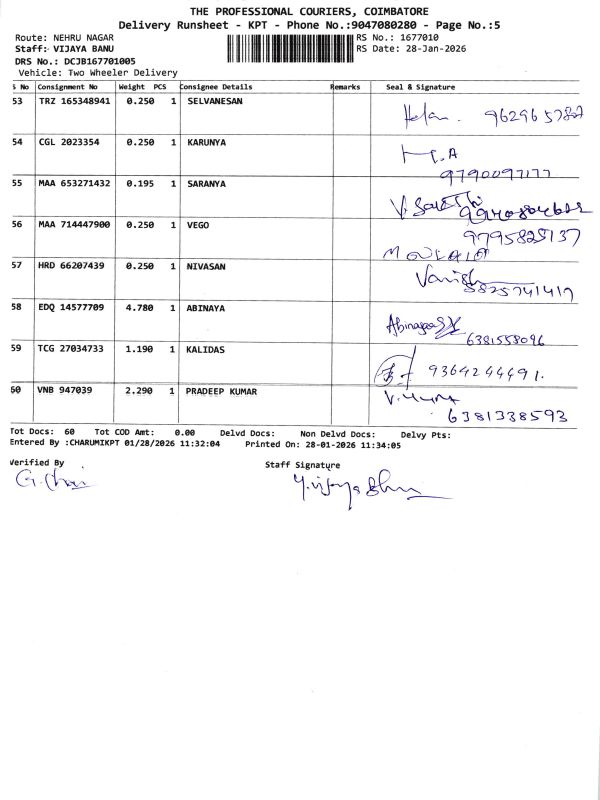 THE PROFESSIONAL COURIERS, COIMBATORE
Delivery Runsheet - KPT - Phone No.:9047080280 - Page No.:5
Route: NEHRU NAGAR
RS No.: 1677010
Staff: VIJAYA BANU
RS Date: 28-Jan-2026
DRS No.: DCJB167701005
Vehicle: Two Wheeler Delivery
S No Consignment No Weight PCS Consignee Details Remarks Seal & Signature
53 TRZ 165348941 0.250 1 SELVANESAN
54 CGL 2023354 0.250 1 KARUNYA
9790097177
55 MAA 653271432 0.195 1 SARANYA
56 MAA 714447900 0.250 1 VEGO
9795825137
57 HRD 66207439 0.250 1 NIVASAN
58 EDQ 14577709 4.780 1 ABINAYA
6381558096
59 TCG 27034733 1.190 1 KALIDAS
9364244491.
60 VNB 947039 2.290 1 PRADEEP KUMAR
6381338593
Tot Docs: 60 Tot COD Amt: 0.00 Delvd Docs: Non Delvd Docs: Delvy Pts:
Entered By :CHARUMIKPT 01/28/2026 11:32:04 Printed On: 28-01-2026 11:34:05
Verified By
Staff Signature